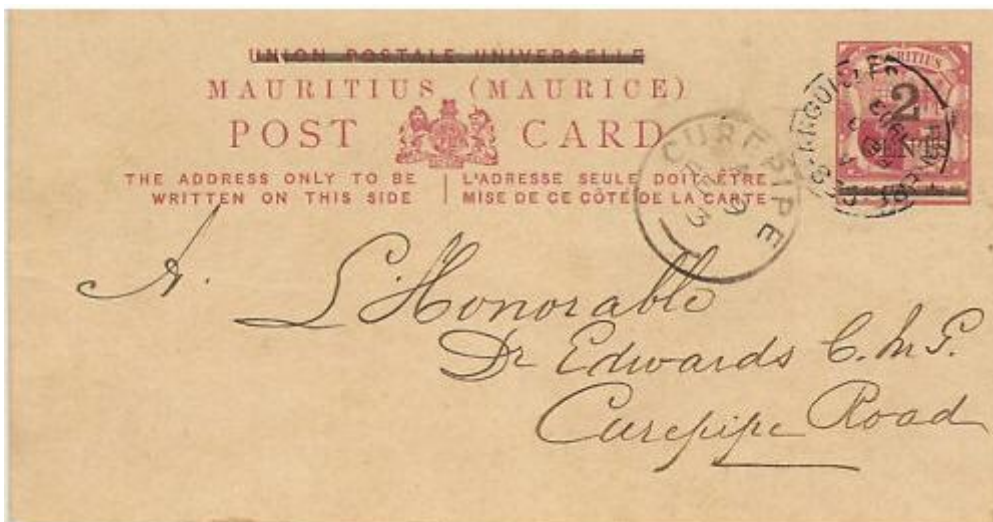 UNION POSTALE UNIVERSELLE
MAURITIUS (MAURICE)
POST CARD
THE ADDRESS ONLY TO BE
WRITTEN ON THIS SIDE
L'ADRESSE SEULE DOIT ÊTRE
MISE DE CE CÔTÉ DE LA CARTE
MAURITIUS
2
CENTS
CUREPIPE
A.
L'Honorable
Dr Edwards C.M.G.
Curepipe Road